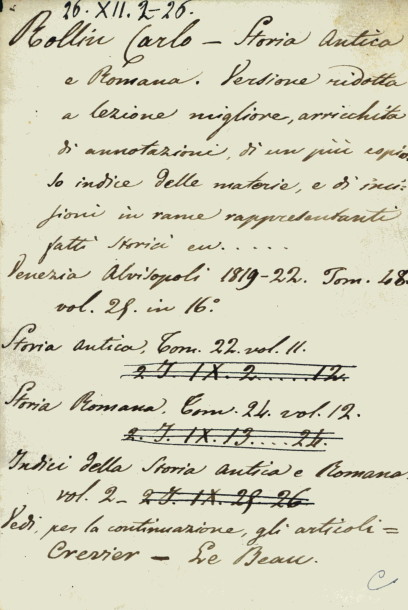 26. XII. 2-26.
Rollin Carlo — Storia Antica
e Romana. Versione ridotta
a lezione migliore, arricchita
di annotazioni, di un più copio
so indice delle materie, e di inci-
sioni in rame rappresentanti
fatti storici ec. . . . .
Venezia Alvisopoli 1819-22. Tom. 48.
vol. 25. in 16°
Storia Antica. Tom. 22. vol. 11.
2. I. IX. 2 . . . . . 12.
Storia Romana. Tom. 24. vol. 12.
2. I. IX. 13 . . . . 24.
Indici della Storia Antica e Romana.
vol. 2 — 2 I. IX. 25 26
Vedi, per la continuazione, gli articoli =
Crevier — Le Beau.
C